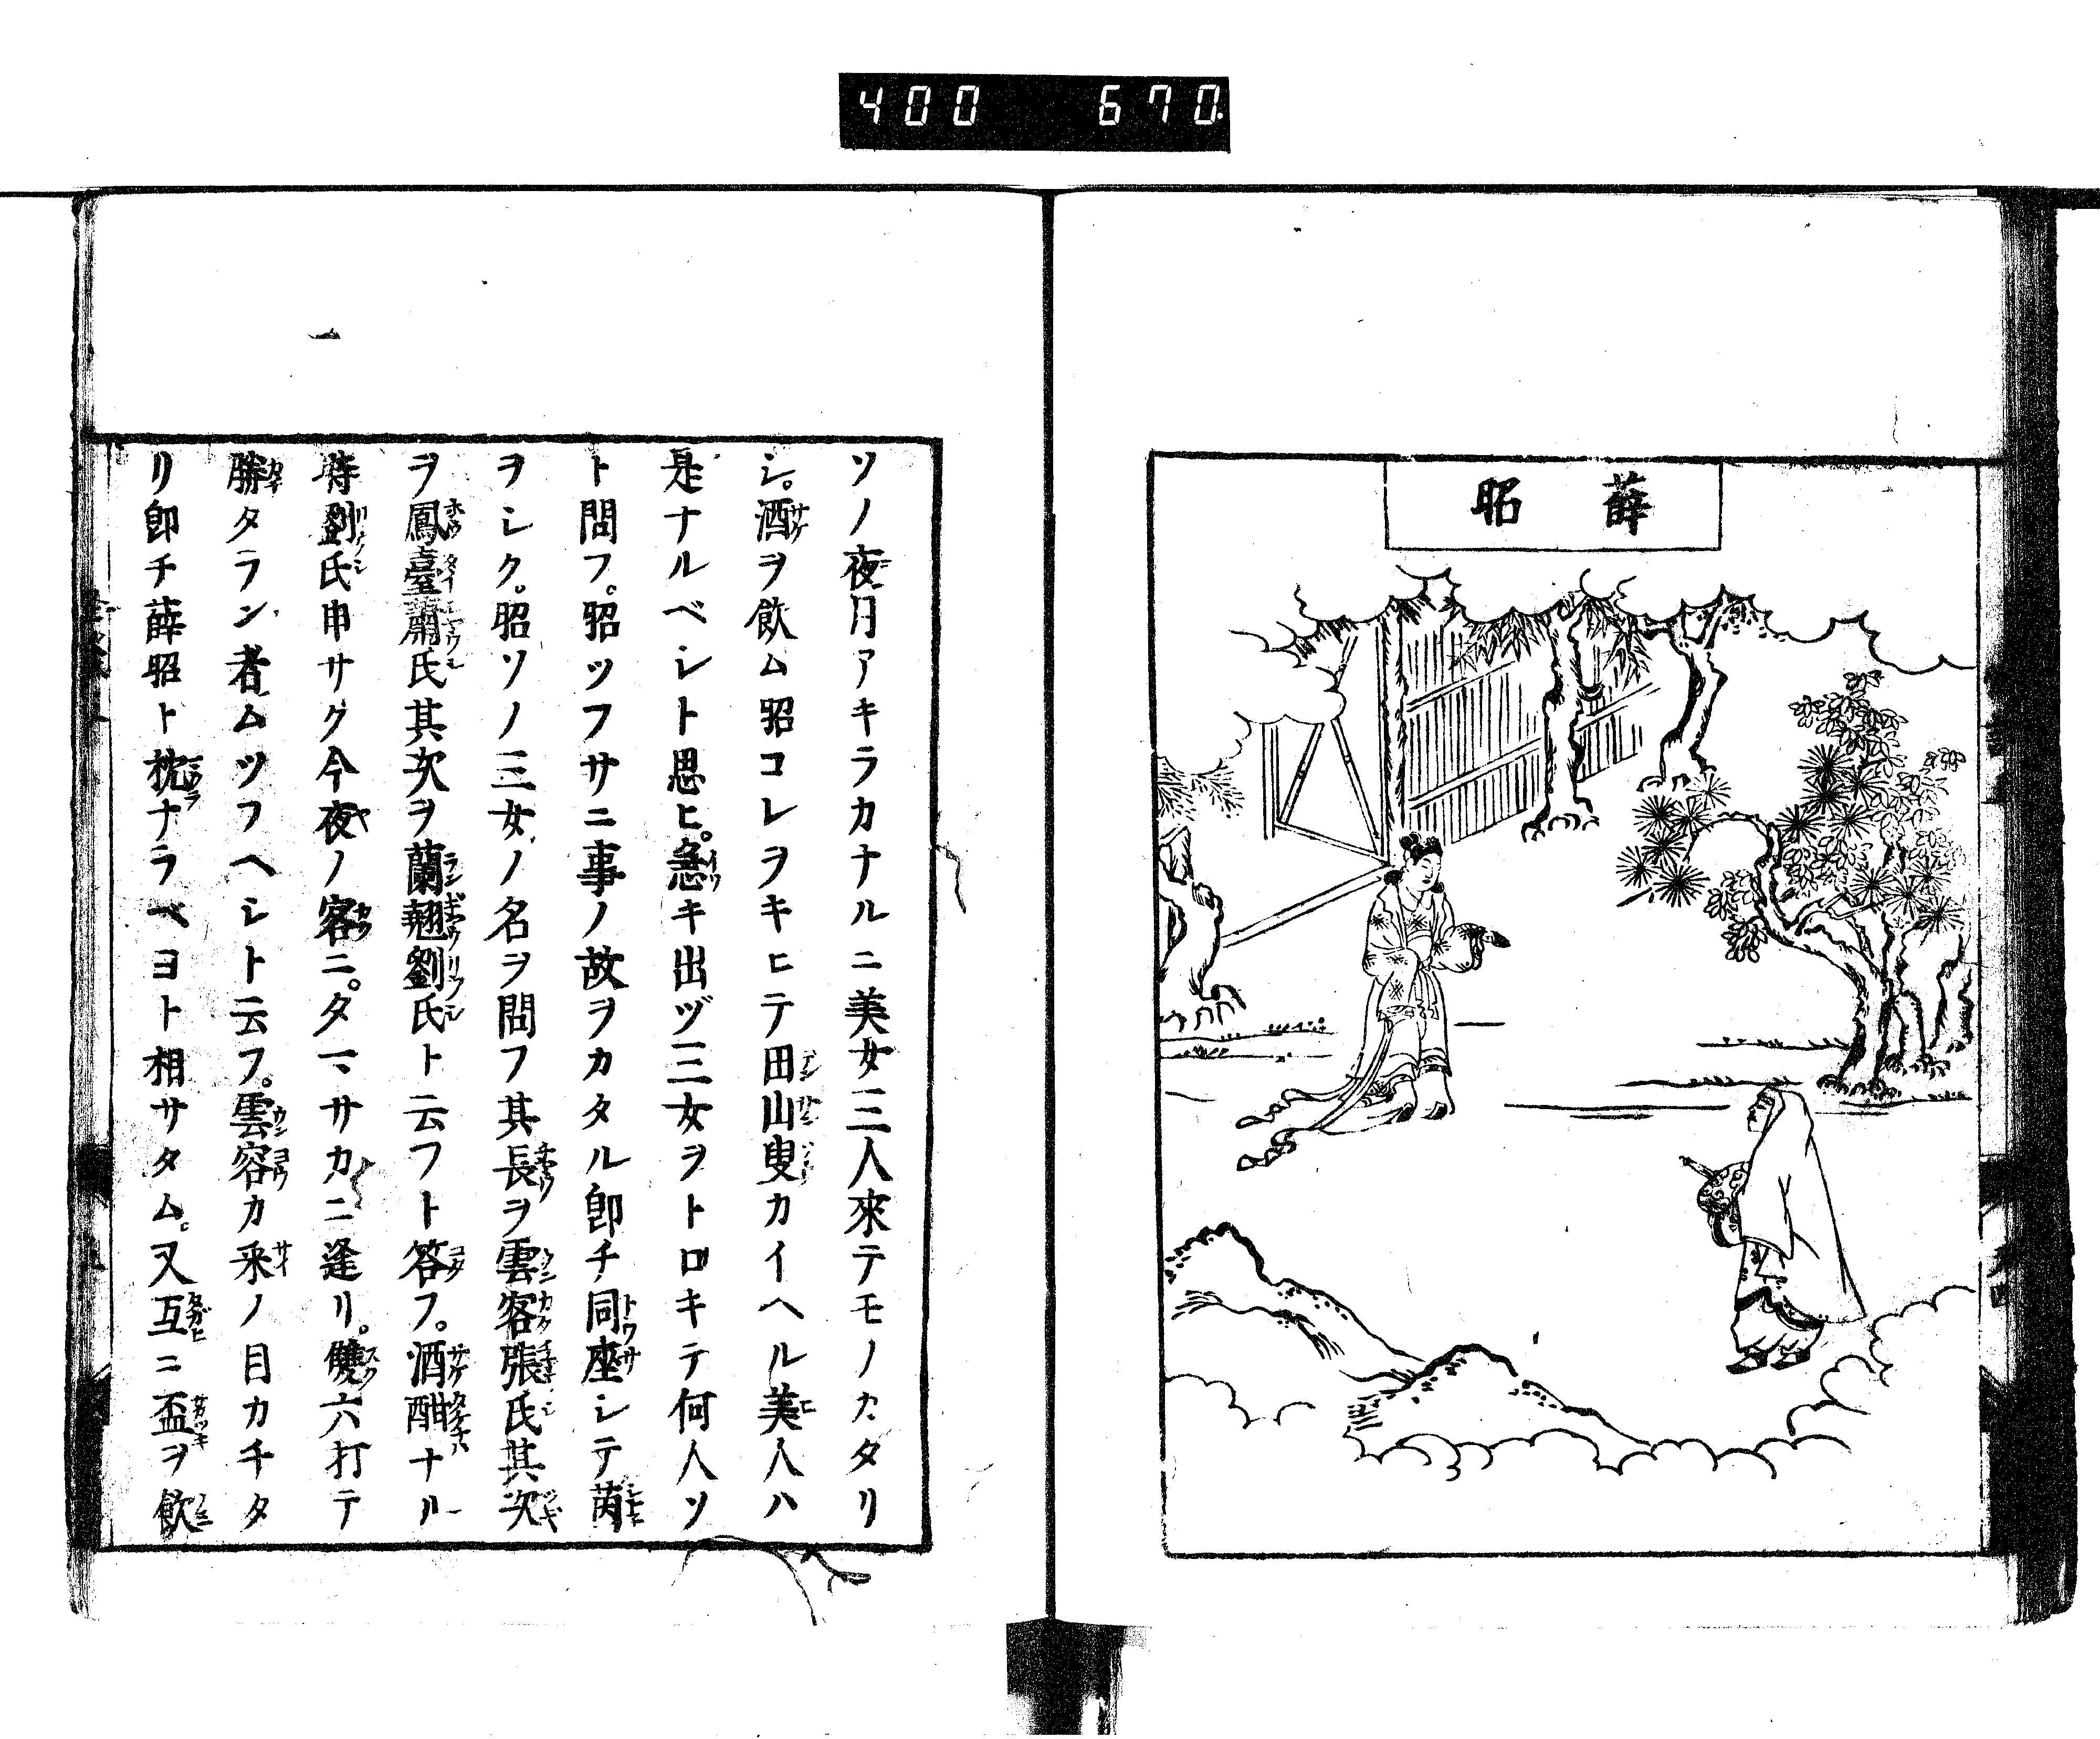 400 670
薛昭
ソノ夜月アキラカナルニ美女三人來テモノカタリ
シ。酒ヲ飲ム昭コレヲキヒテ田山叟カイヘル美人ハ
是ナルベシト思ヒ。急キ出ヅ三女ヲトロキテ何人ソ
ト問フ。昭ツフサニ事ノ故ヲカタル即チ同座シテ茵
ヲシク。昭ソノ三女ノ名ヲ問フ其長ヲ雲容張氏其次
ヲ鳳臺蕭氏其次ヲ蘭翹劉氏ト云フト答フ。酒酣ナル
時劉氏申サク今夜ノ客ニ。タマサカニ逢リ。雙六打テ
勝タラン者ムツフヘシト云フ。雲容カ采ノ目カチタ
リ即チ薛昭ト枕ナラベヨト相サタム。又互ニ盃ヲ飲